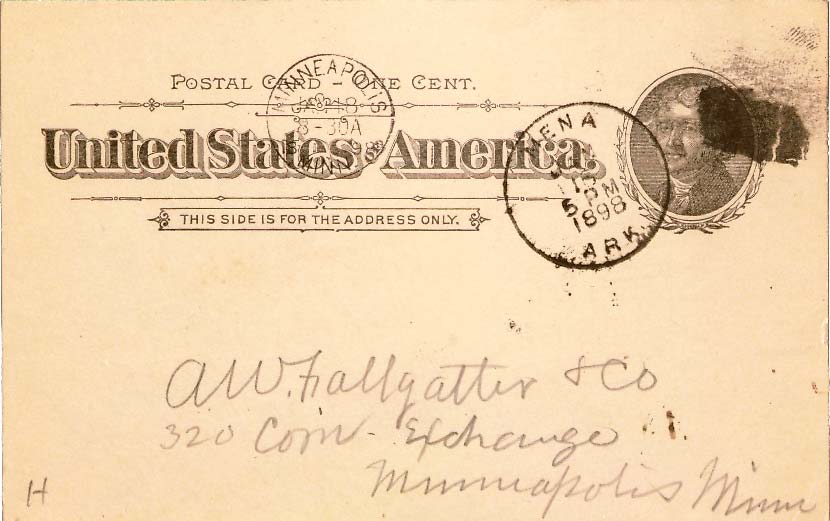 POSTAL CARD – ONE CENT.
United States America.
THIS SIDE IS FOR THE ADDRESS ONLY.
MINNEAPOLIS
8-30A
MINN.
MENA
5 PM
1898
ARK.
A.W. Fallgatter & Co
320 Corn Exchange
Minneapolis Minn
H